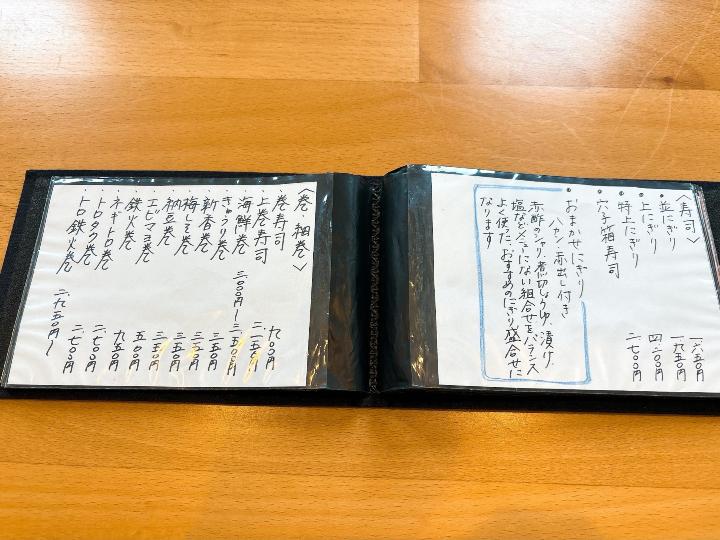 〈寿司〉
・並にぎり 一.六五〇円
・上にぎり 一.九五〇円
・特上にぎり 四.二〇〇円
・穴子箱寿司 二.七〇〇円
・おまかせにぎり
八カン 赤出し付き
赤酢のシャリ、煮切しょうゆ、漬け、
塩などメニューにない組合せをバランス
よく使った、おすすめのにぎり盛合せに
なります
〈巻・細巻〉
・巻寿司 九〇〇円
・上巻寿司 二.一五〇円
・海鮮巻 三.〇〇〇円〜
・きゅうり巻 三五〇円
・新香巻 三五〇円
・梅しそ巻 三五〇円
・納豆巻 三五〇円
・エビマヨ巻 三五〇円
・鉄火巻 五五〇円
・ネギトロ巻 九五〇円
・トロタク巻 二.七〇〇円
・トロ鉄火巻 二.七〇〇円
二.九五〇円〜